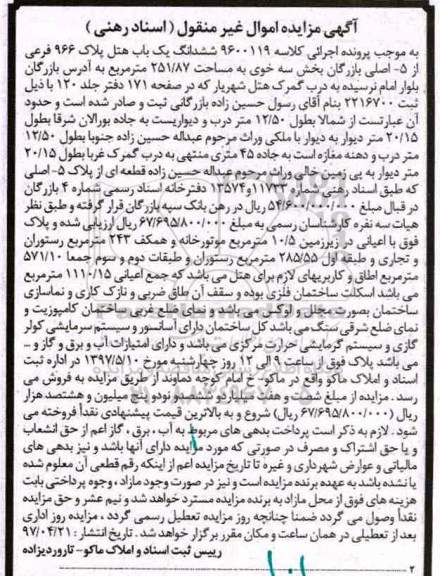 آگهی مزایده اموال غیر منقول ( اسناد رهنی )
به موجب پرونده اجرائی کلاسه ۹۶۰۰۱۱۹ ششدانگ یک باب هتل پلاک ۹۶۶ فرعی
از ۵- اصلی بازرگان بخش سه خوی به مساحت ۲۵۱/۸۷ مترمربع به آدرس بازرگان
بلوار امام نرسیده به درب گمرک هتل شهریار که در صفحه ۱۷۱ دفتر جلد ۱۲۰ با ذیل
ثبت ۲۲۱۶۷۰۰ بنام آقای رسول حسین زاده بازرگانی ثبت و صادر شده است و حدود
آن عبارتست از شمالا بطول ۱۲/۵۰ متر درب و دیواریست به جاده بورالان شرقا بطول
۲۰/۱۵ متر دیوار به دیوار با ملکی وراث مرحوم عبداله حسین زاده جنوبا بطول ۱۲/۵۰
متر درب و دهنه مغازه است به جاده ۴۵ متری منتهی به درب گمرک غربا بطول ۲۰/۱۵
متر دیوار به پی زمین خالی وراث مرحوم عبداله حسین زاده قطعه ای از پلاک ۵- اصلی
که طبق اسناد رهنی شماره ۱۱۷۳۳و۱۳۵۷۴ دفترخانه اسناد رسمی شماره ۴ بازرگان
در قبال مبلغ ۵۴/۶۰۰/۰۰۰/۰۰۰ ریال در رهن بانک سپه بازرگان قرار گرفته و طبق نظر
هیات سه نفره کارشناسان رسمی به مبلغ ۶۷/۶۹۵/۸۰۰/۰۰۰ ریال ارزیابی شده و پلاک
فوق با اعیانی در زیرزمین ۱۰/۵ مترمربع موتورخانه و همکف ۲۴۳ مترمربع رستوران
و تجاری و طبقه اول ۲۸۵/۵۵ مترمربع رستوران و طبقات دوم و سوم جمعا ۵۷۱/۱۰
مترمربع اطاق و کاربریهای لازم برای هتل می باشد که جمع اعیانی ۱۱۱۰/۱۵ مترمربع
می باشد اسکلت ساختمان فلزی بوده و سقف آن طاق ضربی و نازک کاری و نماسازی
ساختمان بصورت مجلل و لوکس می باشد و نمای ضلع غربی ساختمان کامپوزیت و
نمای ضلع شرقی سنگ می باشد کل ساختمان دارای آسانسور و سیستم سرمایشی کولر
گازی و سیستم گرمایشی حرارت مرکزی می باشد و دارای امتیازات آب و برق و گاز و –
می باشد پلاک فوق از ساعت ۹ الی ۱۲ روز چهارشنبه مورخ ۱۳۹۷/۵/۱۰ در اداره ثبت
اسناد و املاک ماکو واقع در ماکو- خ امام کوچه دماوند از طریق مزایده به فروش می
رسد . مزایده از مبلغ شصت و هفت میلیارد و ششصد نود و پنج میلیون و هشتصد هزار
ریال (۶۷/۶۹۵/۸۰۰/۰۰۰ ریال) شروع و به بالاترین قیمت پیشنهادی نقداً فروخته می
شود . لازم به ذکر است پرداخت بدهی های مربوط به آب ، برق ، گاز اعم از حق انشعاب
و یا حق اشتراک و مصرف در صورتی که مورد مزایده دارای آنها باشد و نیز بدهی های
مالیاتی و عوارض شهرداری و غیره تا تاریخ مزایده اعم از اینکه رقم قطعی آن معلوم شده
یا نشده باشد به عهده برنده مزایده است و نیز در صورت وجود مازاد ، وجوه پرداختی بابت
هزینه های فوق از محل مازاد به برنده مزایده مسترد خواهد شد و نیم عشر و حق مزایده
نقداً وصول می گردد ضمنا چنانچه روز مزایده تعطیل رسمی گردد ، مزایده روز اداری
بعد از تعطیلی در همان ساعت و مکان مقرر برگزار خواهد شد . تاریخ انتشار : ۹۷/۰۴/۲۱
رییس ثبت اسناد و املاک ماکو- تاروردیزاده
۲